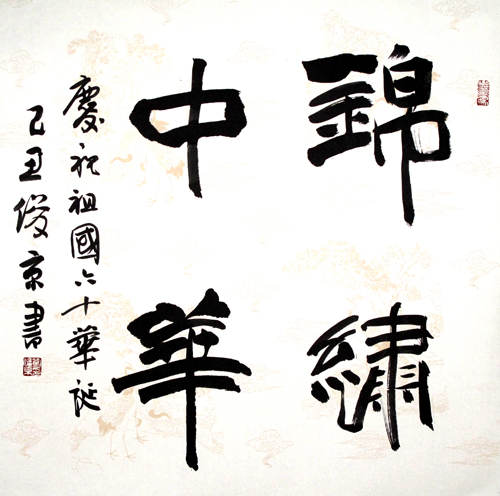 錦繡
中華
慶祝祖國六十華誕
己丑俊京書